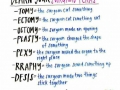 -TOMY- the surgeon cut something
-ECTOMY- the surgeon cut something out
-OSTOMY- the surgeon made an opening
-PLASTY- the surgeon changed the shape of something
-PEXY- the surgeon moved the organ to the right place
-RRAPHY- the surgeon sewed something up
-DESIS- the surgeon made two things stick together